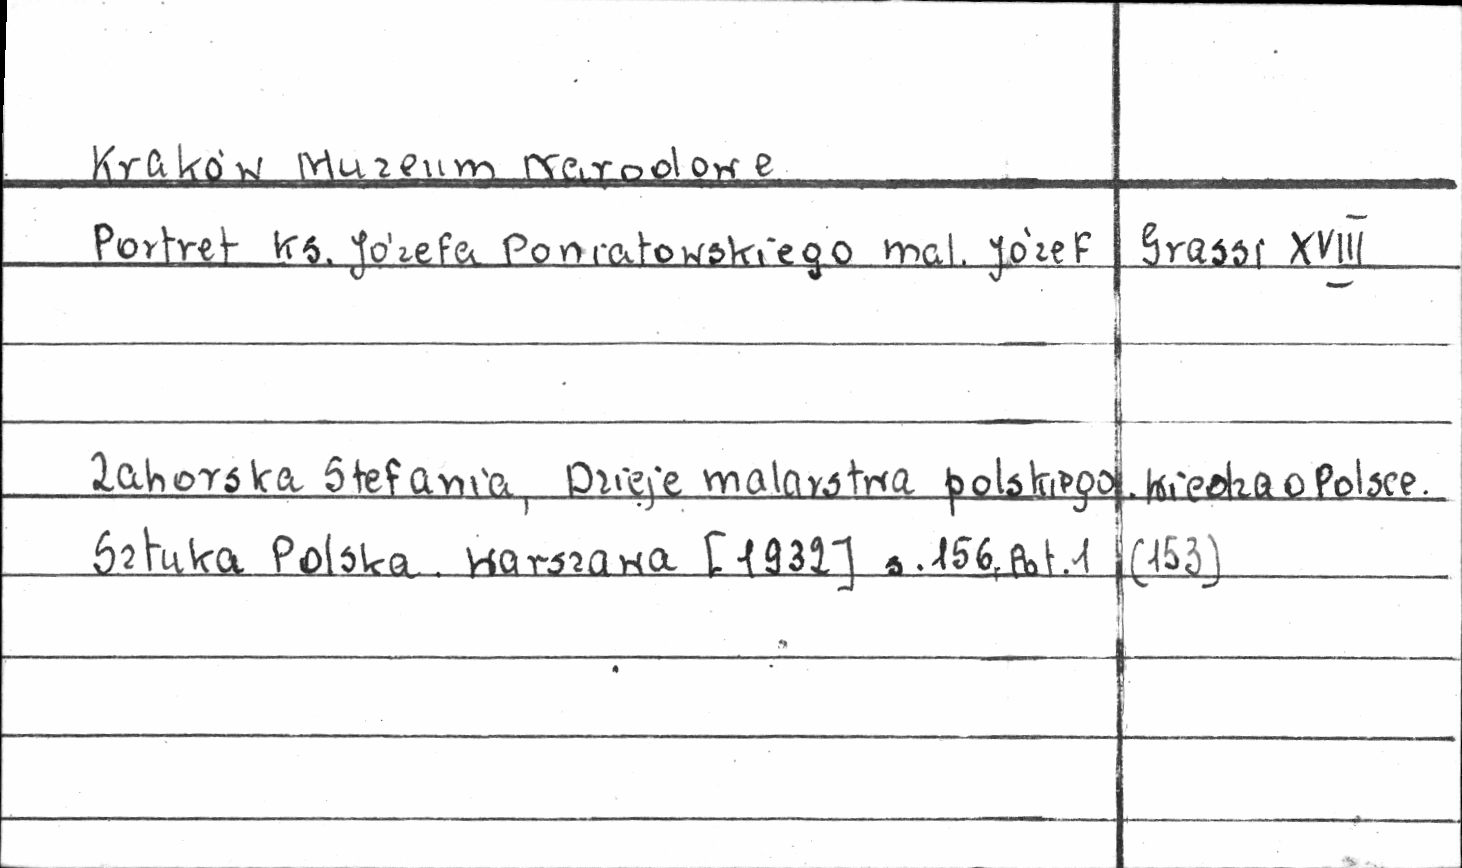 Kraków Muzeum Narodowe
Portret Ks. Józefa Poniatowskiego mal. Józef Grassi XVIII
Zahorska Stefania, Dzieje malarstwa polskiego. Wiedza o Polsce.
Sztuka Polska. Warszawa [1932] s. 156, Fot. 1 (153)